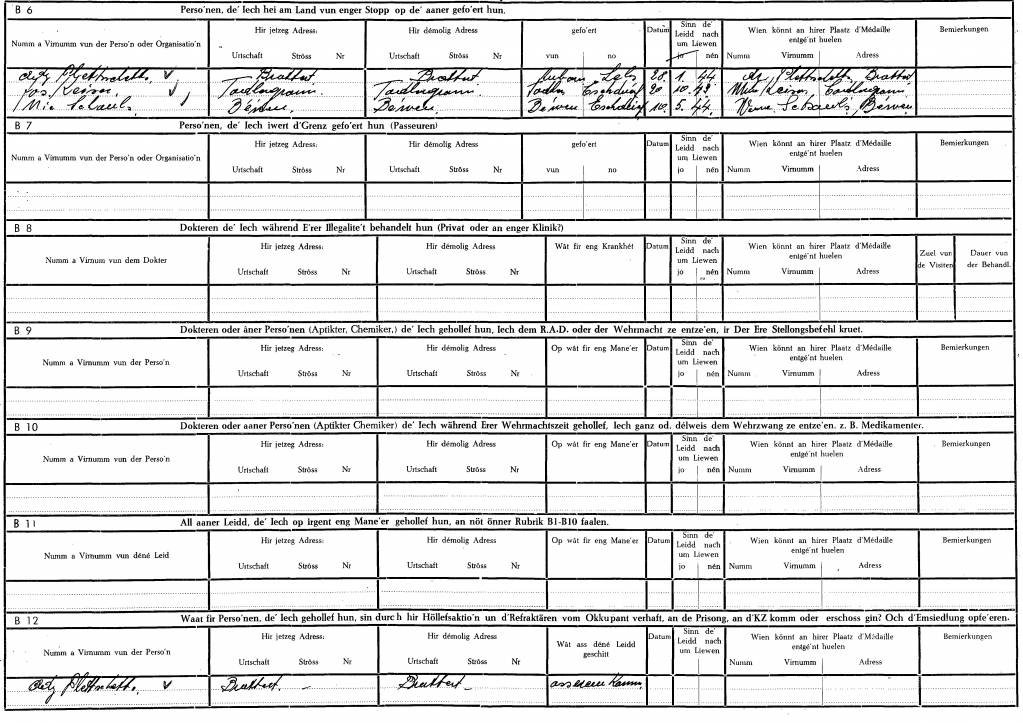 B 6 Perso'nen, de' Iech hei am Land vun enger Stopp op de' aaner gefo'ert hun.
Numm a Virnumm vun der Perso'n oder Organisatio'n Hir jetzeg Adress: Hir démolig Adress: gefo'ert Datum Sinn de' Leidd nach um Liewen Wien könnt an hirer Plaatz d'Médaille entgé'nt huelen Bemierkungen
Urtschaft Ströss Nr Urtschaft Ströss Nr vun no jo nén Numm Virnumm Adress
28. 1. 44
Jos. 20 10. 43
Béiwen Eschduerf 10. 5. 44.
B 7 Perso'nen, de' Iech iwert d'Grenz gefo'ert hun (Passeuren)
Numm a Virnumm vun der Perso'n oder Organisatio'n Hir jetzeg Adress: Hir démolig Adress: gefo'ert Datum Sinn de' Leidd nach um Liewen Wien könnt an hirer Plaatz d'Médaille entgé'nt huelen Bemierkungen
Urtschaft Ströss Nr Urtschaft Ströss Nr vun no jo nén Numm Virnumm Adress
B 8 Dokteren de' Iech während E'rer Illegalite't behandelt hun (Privat oder an enger Klinik?)
Numm a Virnum vun dem Dokter Hir jetzeg Adress: Hir démolig Adress: Wät fir eng Krankhét Datum Sinn de' Leidd nach um Liewen Wien könnt an hirer Plaatz d'Médaille entgé'nt huelen Zuel vun de Visiten Dauer vun der Behandl.
Urtschaft Ströss Nr Urtschaft Ströss Nr jo nén Numm Virnumm Adress
B 9 Dokteren oder âner Perso'nen (Aptikter, Chemiker,) de' Iech gehollef hun, Iech dem R.A.D. oder der Wehrmacht ze entze'en, ir Der Ere Stellongsbefehl kruet.
Numm a Virnumm vun der Perso'n Hir jetzeg Adress: Hir démolig Adress: Op wät fir eng Mane'er Datum Sinn de' Leidd nach um Liewen Wien könnt an hirer Plaatz d'Médaille entgé'nt huelen Bemierkungen
Urtschaft Ströss Nr Urtschaft Ströss Nr jo nén Numm Virnumm Adress
B 10 Dokteren oder aaner Perso'nen (Aptikter Chemiker) de' Iech während Erer Wehrmachtszeit gehollef, Iech ganz od. délweis dem Wehrzwang ze entze'en. z. B. Medikamenter.
Numm a Virnumm vun der Perso'n Hir jetzeg Adress: Hir démolig Adress: Op wät fir eng Mane'er Datum Sinn de' Leidd nach um Liewen Wien könnt an hirer Plaatz d'Médaille entgé'nt huelen Bemierkungen
Urtschaft Ströss Nr Urtschaft Ströss Nr jo nén Numm Virnumm Adress
B 11 All aaner Leidd, de' Iech op irgent eng Mane'er gehollef hun, an nöt önner Rubrik B1-B10 faalen.
Numm a Virnumm vun déné Leid Hir jetzeg Adress: Hir démolig Adress: Op wät fir eng Mane'er Datum Sinn de' Leidd nach um Liewen Wien könnt an hirer Plaatz d'Médaille entgé'nt huelen Bemierkungen
Urtschaft Ströss Nr Urtschaft Ströss Nr jo nén Numm Virnumm Adress
B 12 Waat fir Perso'nen, de' Iech gehollef hun, sin durch hir Höllefsaktio'n un d'Refraktären vom Okkupant verhaft, an de Prisong, an d'KZ komm oder erschoss gin? Och d'Emsiedlung opfe'eren.
Numm a Virnumm vun der Perso'n Hir jetzeg Adress: Hir démolig Adress Wät ass déné Leidd geschitt Datum Sinn de' Leidd nach um Liewen Wien könnt an hirer Plaatz d'Médaille entgé'nt huelen Bemierkungen
Urtschaft Ströss Nr Urtschaft Ströss Nr jo nén Numm Virnumm Adress